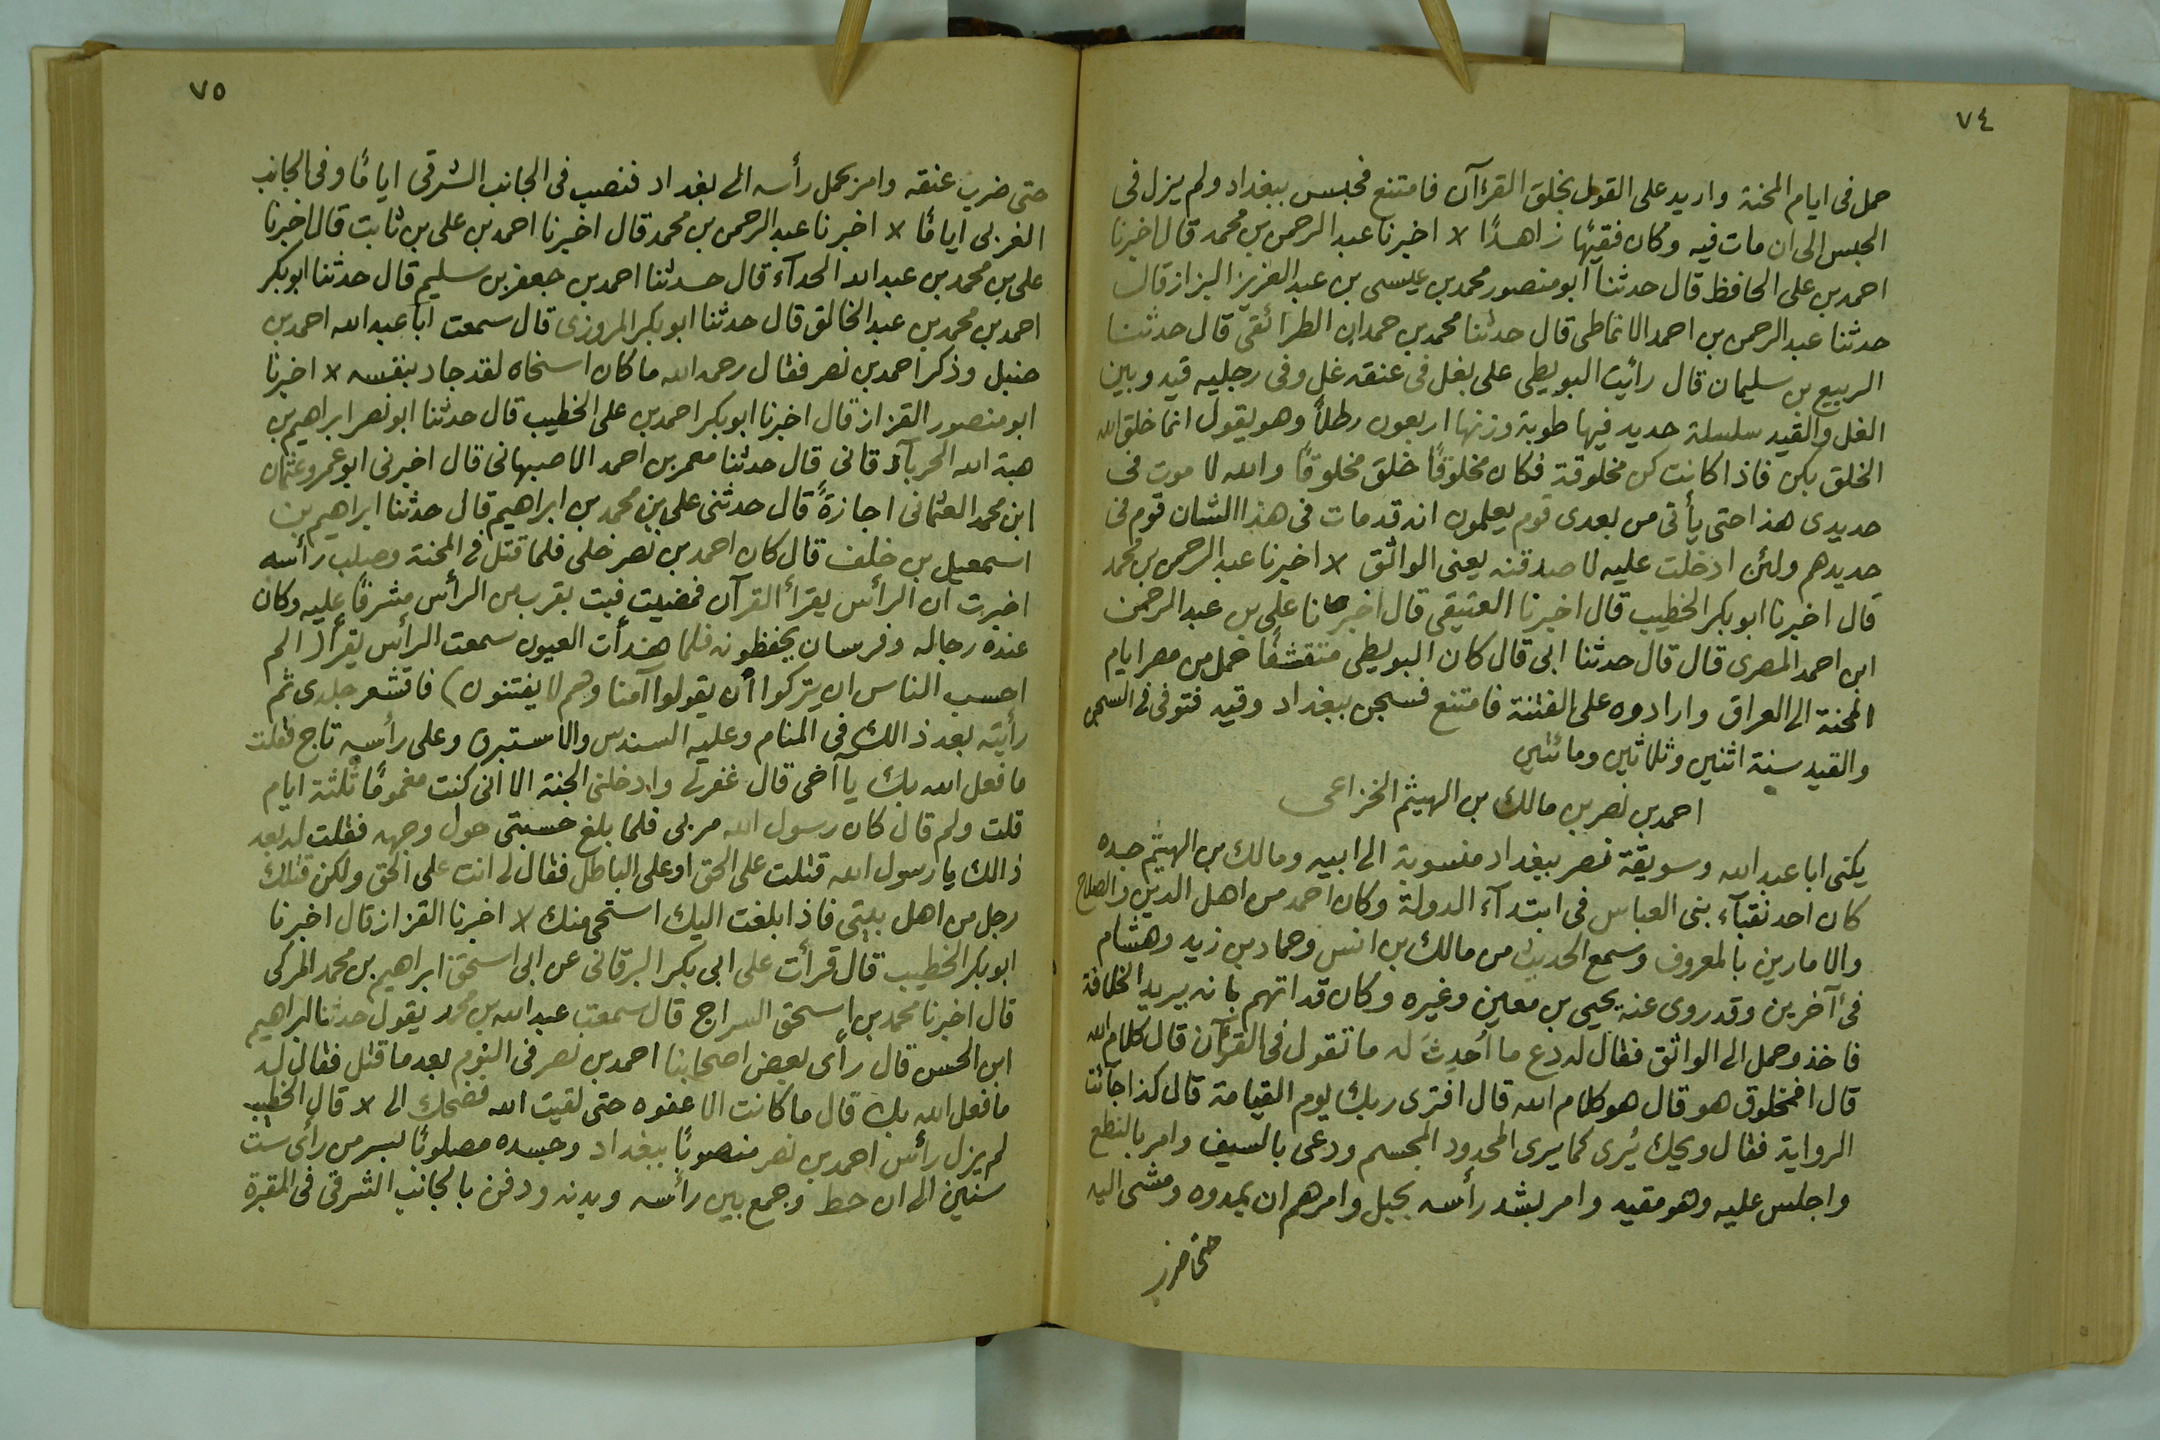 ٧٤
حمل فى ايام المحنة واريد على القول بخلق القرآن فامتنع فحبس ببغداد ولم يزل فى
الحبس الى ان مات فيه وكان فقيها زاهدًا لا اخبرنا عبد الرحمن بن محمد قال اخبرنا
احمد بن على الحافظ قال حدثنا ابو منصور محمد بن عيسى بن عبد العزيز البزاز قال
حدثنا عبد الرحمن بن احمد الانماطى قال حدثنا محمد بن حمدان الطرائقى قال حدثنا
الربيع بن سليمان قال رائيت البويطى على بغل فى عنقه غل وفى رجليه قيد وبين
الغل والقيد سلسلة حديد فيها طوبة وزنها اربعون رطلًا وهو يقول انما خلق الله
الخلق بكن فاذا كانت كن مخلوقة فكان مخلوقًا خلق مخلوقًا والله لا موت فى
حديدى هذا حتى يأتى من بعدى قوم يعلمون انه قد مات فى هذا الشان قوم فى
حديدهم ولئن ادخلت عليه لاصدقنه يعنى الواثق لا اخبرنا عبد الرحمن بن محمد
قال اخبرنا ابو بكر الخطيب قال اخبرنا العتيقى قال اخبرنا على بن عبد الرحمن
ابن احمد المصرى قال قال حدثنا ابى قال كان البويطى متقشفًا حمل من مصر ايام
المحنة الى العراق وارادوه على الفتنة فامتنع فسجن ببغداد وقيد فتوفى فى السجن
والقيد سنة اثنين وثلاثين ومائتين
احمد بن نصر بن مالك بن الهيثم الخزاعى
يكنى ابا عبد الله وسويقة نصر ببغداد منسوبة الى ابيه ومالك بن الهيثم جده
كان احد نقبآء بنى العباس فى ابتدآء الدولة وكان احمد من اهل الدين والصلاح
والامارين بالمعروف وسمع الحديث من مالك بن انس وحماد بن زيد وهشام
فى آخرين وقد روى عنه يحيى بن معين وغيره وكان قد اتهم بانه يريد الخلافة
فاخذ وحمل الى الواثق فقال له دع ما أُحدِث له ما تقول فى القرآن قال كلام الله
قال افمخلوق هو قال هو كلام الله قال افترى ربك يوم القيامة قال كذا جآئت
الرواية فقال ويحك يُرى كما يرى المحدود المجسم ودعى بالسيف وامر بالنطع
واجلس عليه وهو مقيد وامر بشد رأسه بحبل وامرهم ان يمدوه ومشى اليه
حتى ضرب
٧٥
حتى ضرب عنقه وامر بحمل رأسه الى بغداد فنصب فى الجانب الشرقى ايامًا وفى الجانب
الغربى ايامًا لا اخبرنا عبد الرحمن بن محمد قال اخبرنا احمد بن على بن ثابت قال اخبرنا
على بن محمد بن عبد الله الحدآء قال حدثنا احمد بن جعفر بن سليم قال حدثنا ابو بكر
احمد بن محمد بن عبد الخالق قال حدثنا ابو بكر المروزى قال سمعت ابا عبد الله احمد بن
حنبل وذكر احمد بن نصر فقال رحمه الله ما كان اسخاه لقد جاد بنفسه لا اخبرنا
ابو منصور القزاز قال اخبرنا ابو بكر احمد بن على الخطيب قال حدثنا ابو نصر ابراهيم بن
هبة الله الجرباذقانى قال حدثنا معمر بن احمد الاصبهانى قال اخبرنى ابو عمرو عثمان
ابن محمد العثمانى اجازةً قال حدثنى على بن محمد بن ابراهيم قال حدثنا ابراهيم بن
اسمعيل بن خلف قال كان احمد بن نصر خلى فلما قتل فى المحنة وصلب رأسه
اخبرت ان الرأس يقرأ القرآن فمضيت فبت بقرب من الرأس مشرفًا عليه وكان
عنده رجاله وفرسان يحفظونه فلما هدأت العيون سمعت الرأس يقرأ (الم
احسب الناس ان يتركوا أن يقولوا آمنا وهم لا يفتنون) فاقشعر جلدى ثم
رأيته بعد ذالك فى المنام وعليه السندس والاستبرق وعلى رأسه تاج فقلت
ما فعل الله بك يا أخى قال غفر لى وادخلنى الجنة الا انى كنت مغمومًا ثلثة ايام
قلت ولم قال كان رسول الله مر بى فلما بلغ خشبتى حول وجهه فقلت له بعد
ذالك يا رسول الله قتلت على الحق او على الباطل فقال لى انت على الحق ولكن قتلك
رجل من اهل بيتى فاذا بلغت اليك استحى منك لا اخبرنا القزاز قال اخبرنا
ابو بكر الخطيب قال قرأت على ابى بكر البرقانى عن ابى اسحق ابراهيم بن محمد المزكى
قال اخبرنا محمد بن اسحق السراج قال سمعت عبد الله بن محمد يقول حدثنا ابراهيم
ابن الحسن قال رأى بعض اصحابنا احمد بن نصر فى النوم بعد ما قتل فقال له
ما فعل الله بك قال ما كانت الا غفوه حتى لقيت الله فضحك الى لا قال الخطيب
لم يزل رأس احمد بن نصر منصوبًا ببغداد وجسده مصلوبًا بسر من رأى ست
سنين الى ان حط وجمع بين رأسه وبدنه ودفن بالجانب الشرقى فى المقبرة